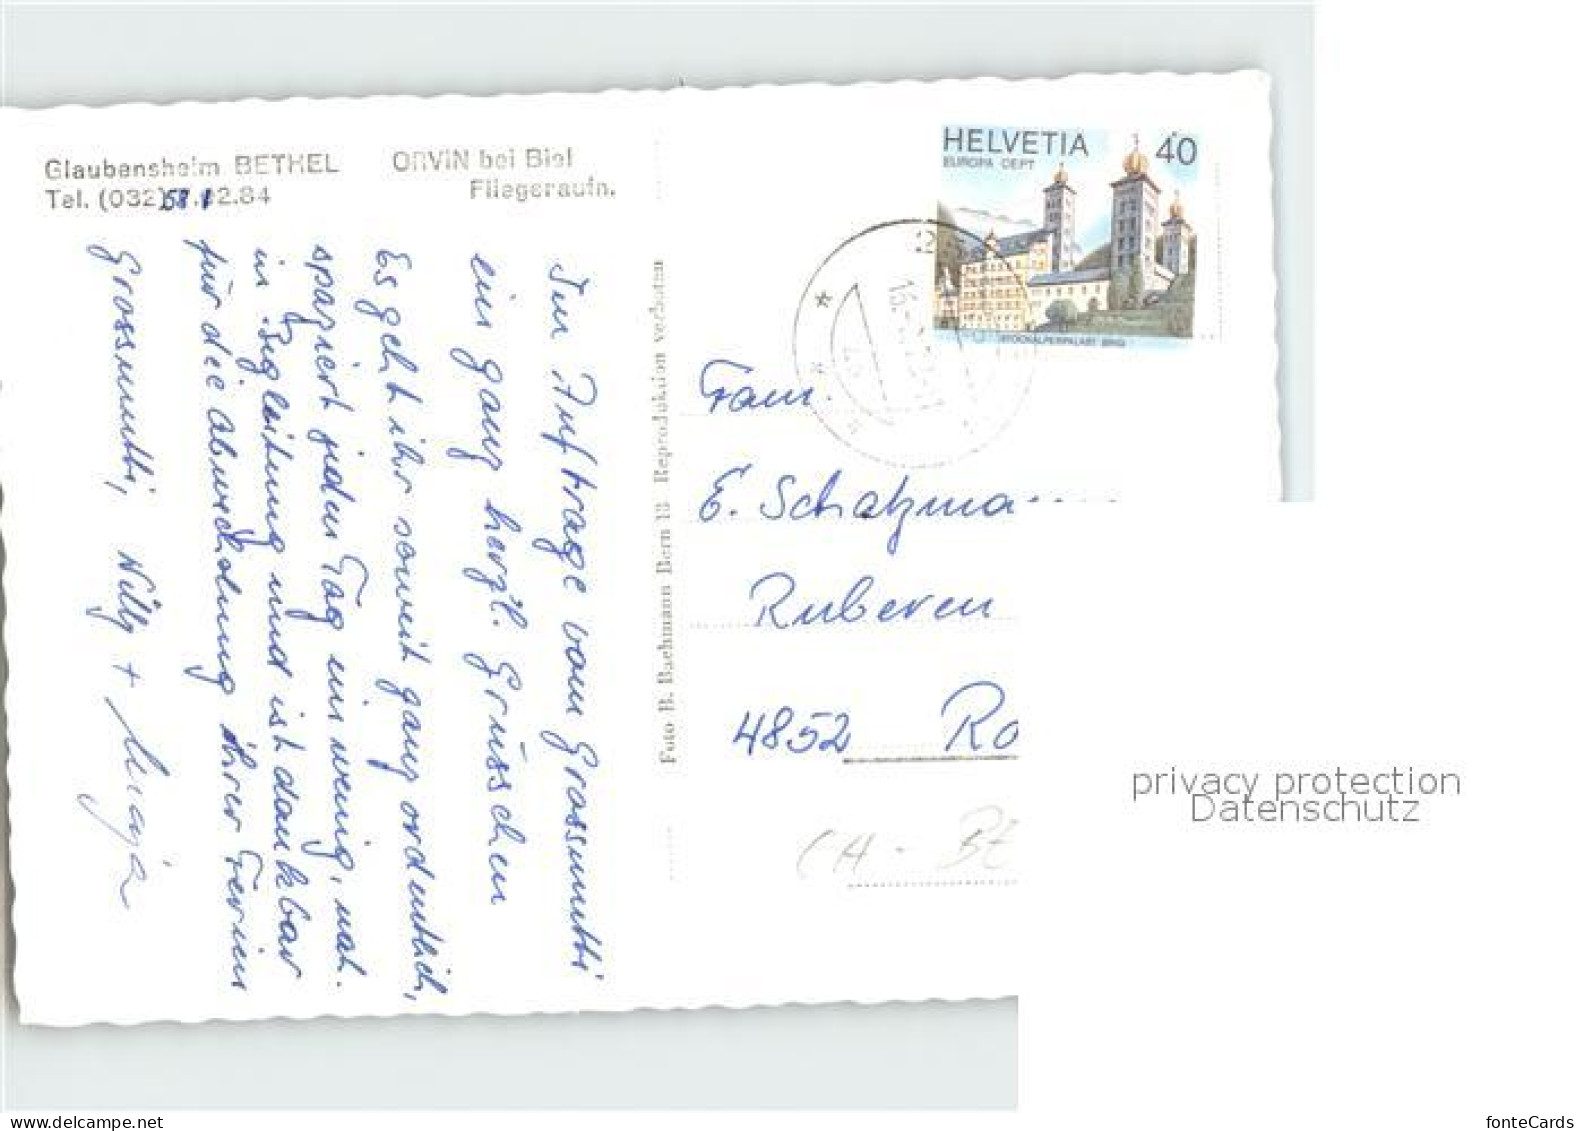 Glaubensheim BETHEL
Tel. (032) 58.1 2.84
ORVIN bei Biel
Fliegeraufn.
Im Auftrage vom Grossmutti
ein ganz herzl. Grüsschen
Es geht ihr soweit ganz ordentlich,
spaziert jeden Tag ein wenig, nat.
in Begleitung und ist dankbar
für die Abwechslung ihrer Ferien
Grossmutti, Willy +
Foto B. Bachmann Bern 13 Reproduktion verboten
HELVETIA 40
EUROPA CEPT
STOCKALPERPALAST BRIG
Fam.
E. Schatzma
Ruberen
4852 Ro
CH - BE
privacy protection
Datenschutz
fonteCards